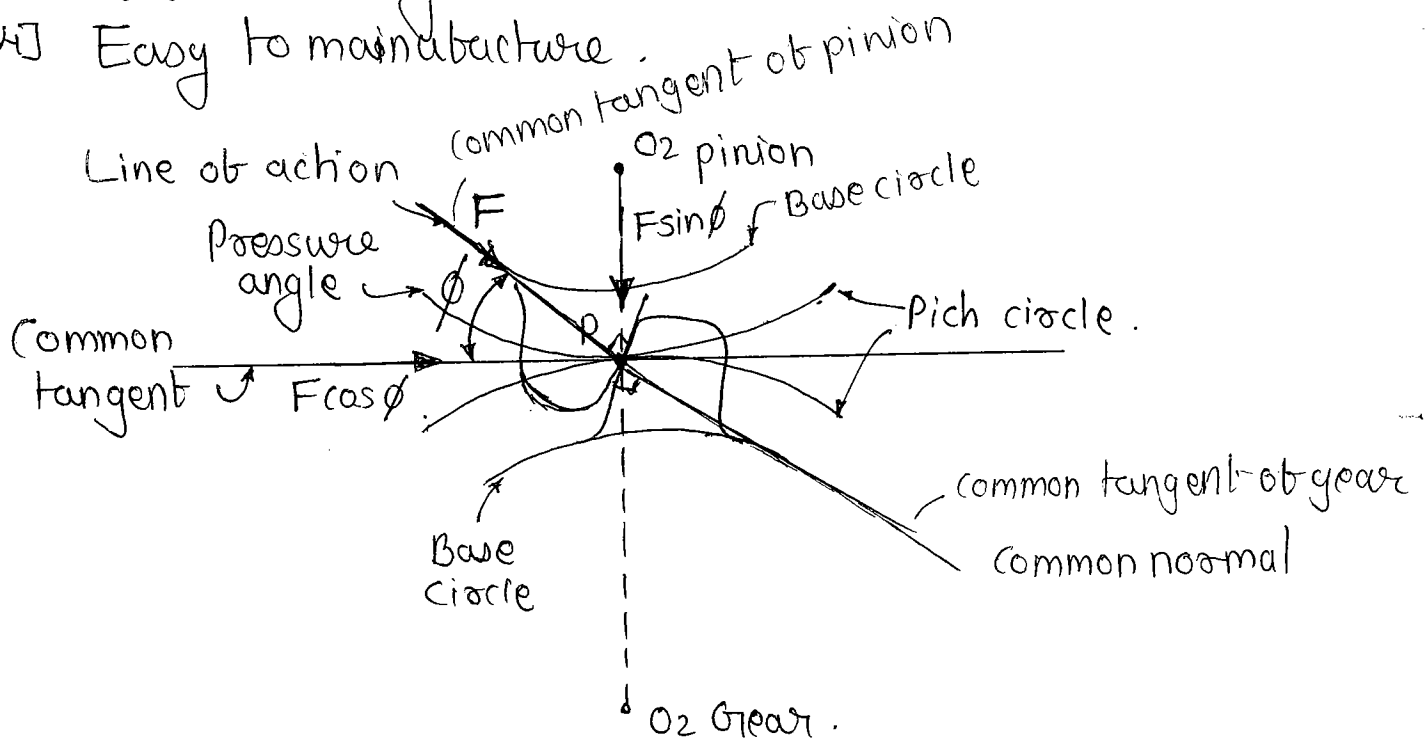 4] Easy to mainubacture.
Common tangent ob pinion
O2 pinion
Line ob action
F
Fsinϕ
Base circle
Pressure
angle
ϕ
P
Pich circle.
Common
tangent
Fcosϕ.
Common tangent ob gear
Common normal
Base
Circle
O2 Gear.